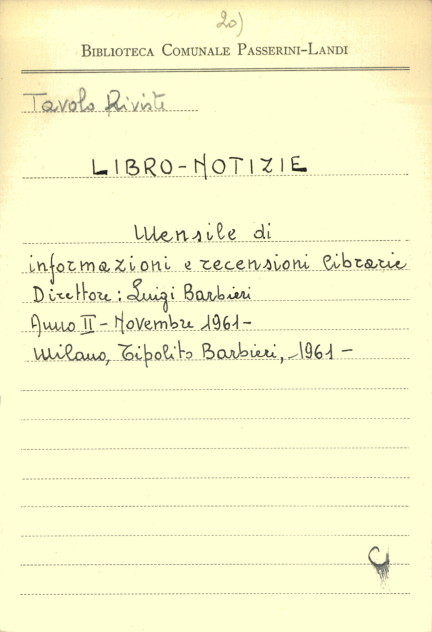 20)
BIBLIOTECA COMUNALE PASSERINI-LANDI
Tavolo Riviste
LIBRO-NOTIZIE
Mensile di
informazioni e recensioni librarie
Direttore: Luigi Barbieri
Anno II - Novembre 1961-
Milano, Tipolito Barbieri, 1961-
C